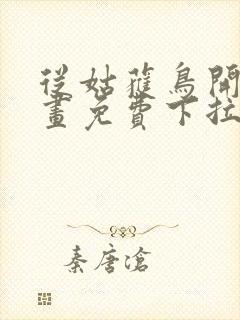 從姑蘿鳥開
畫免費下拉
秦唐滄